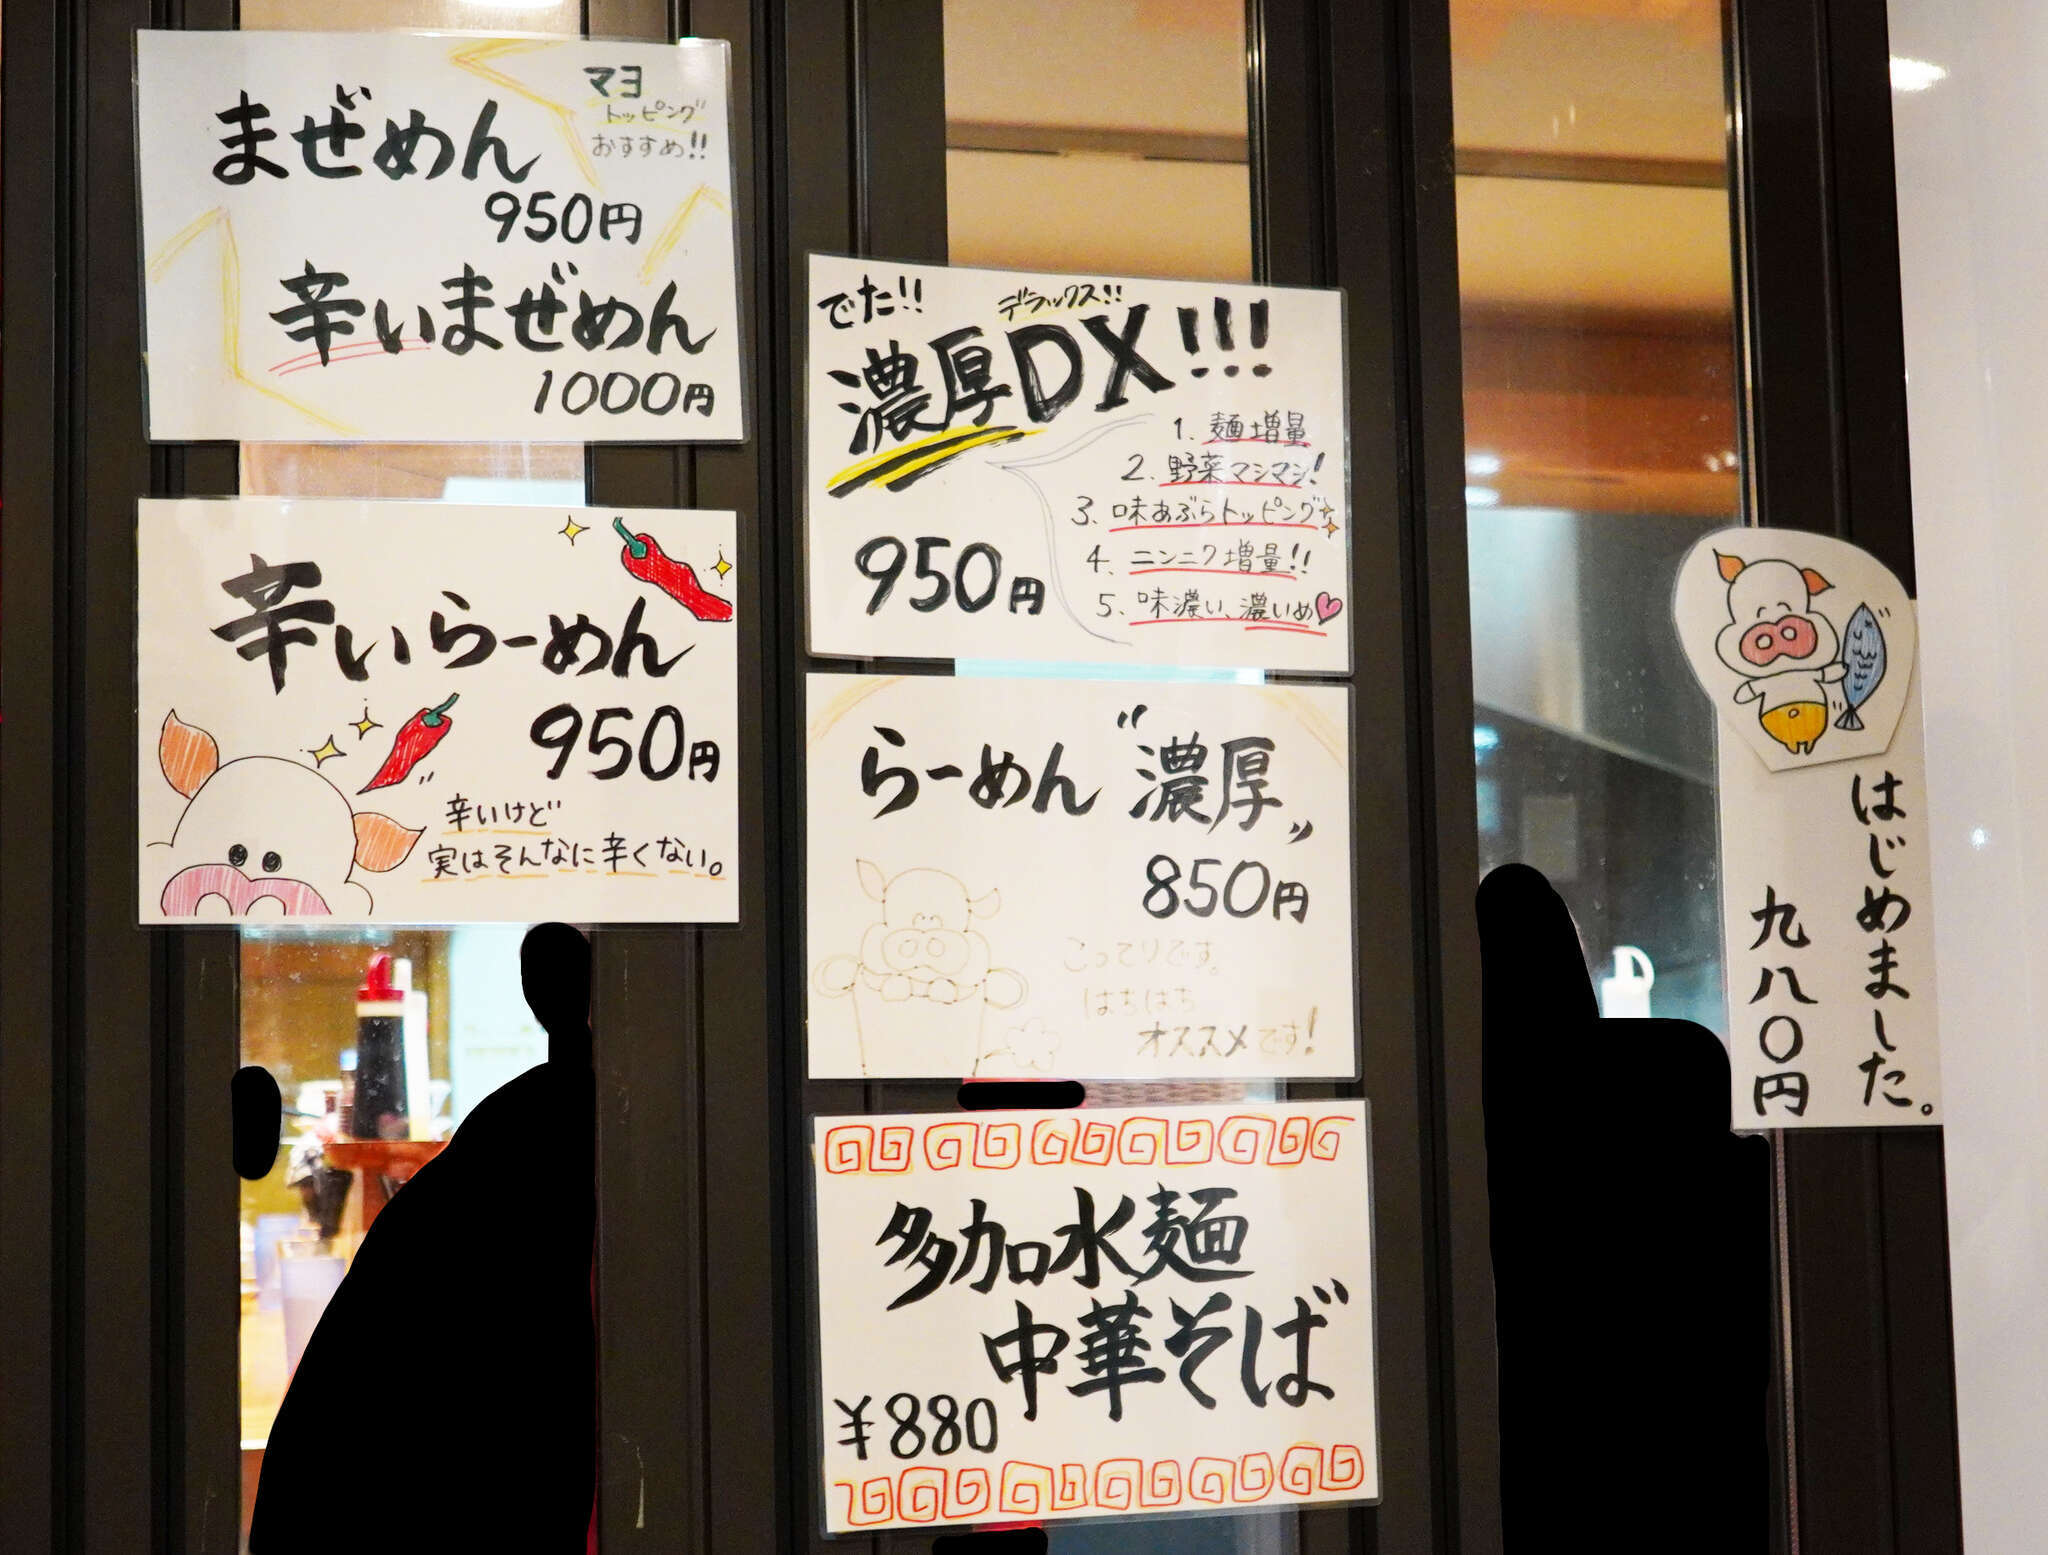 まぜめん
マヨ
トッピング
おすすめ!!
950円
辛いまぜめん
1000円
辛いらーめん
950円
辛いけど
実はそんなに辛くない。
でた!!
デラックス!!
濃厚DX!!!
1. 麺増量
2. 野菜マシマシ!
3. 味あぶらトッピング
4. ニンニク増量!!
5. 味濃い、濃いめ
950円
らーめん"濃厚"
850円
こってりです。
はちはち
オススメです!
多加水麺
中華そば
¥880
はじめました。
九八〇円